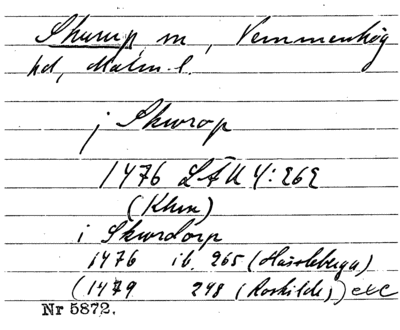 Skurup sn, Vemmenhög
hd, Malm. l.
j Skurop
1476 LÄU 4:262
(Khvn)
i Skurdorp
1476 ib. 265 (Hassleberga)
(1479 248 (Roskilde)) etc
Nr 5872.